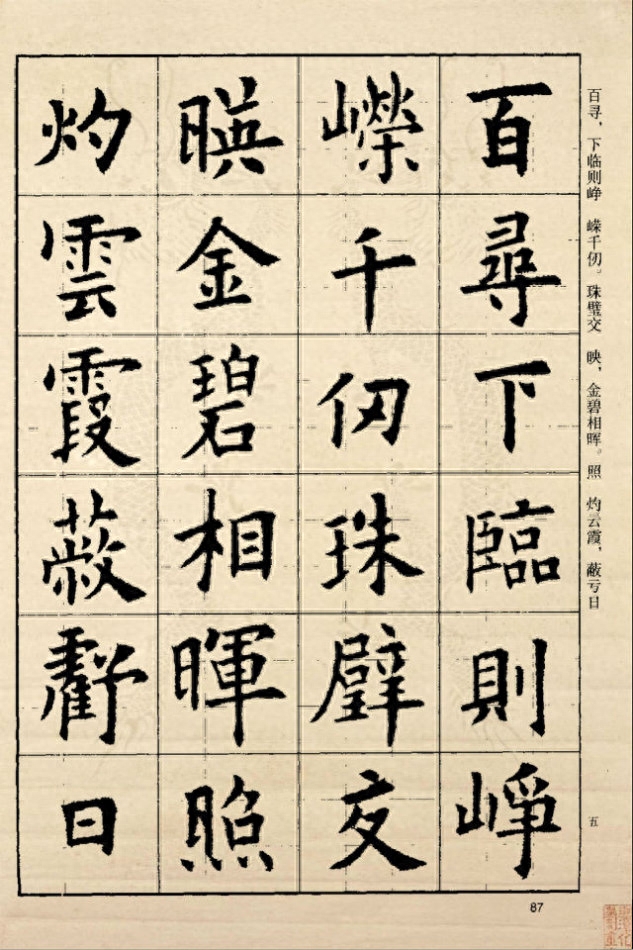 百尋下臨則崢
嶸千仞珠壁交
暎金碧相暉照
灼雲霞蔽虧日
百寻，下临则峥 嵘千仞。珠璧交 映，金碧相晖。照 灼云霞，蔽亏日
五
87